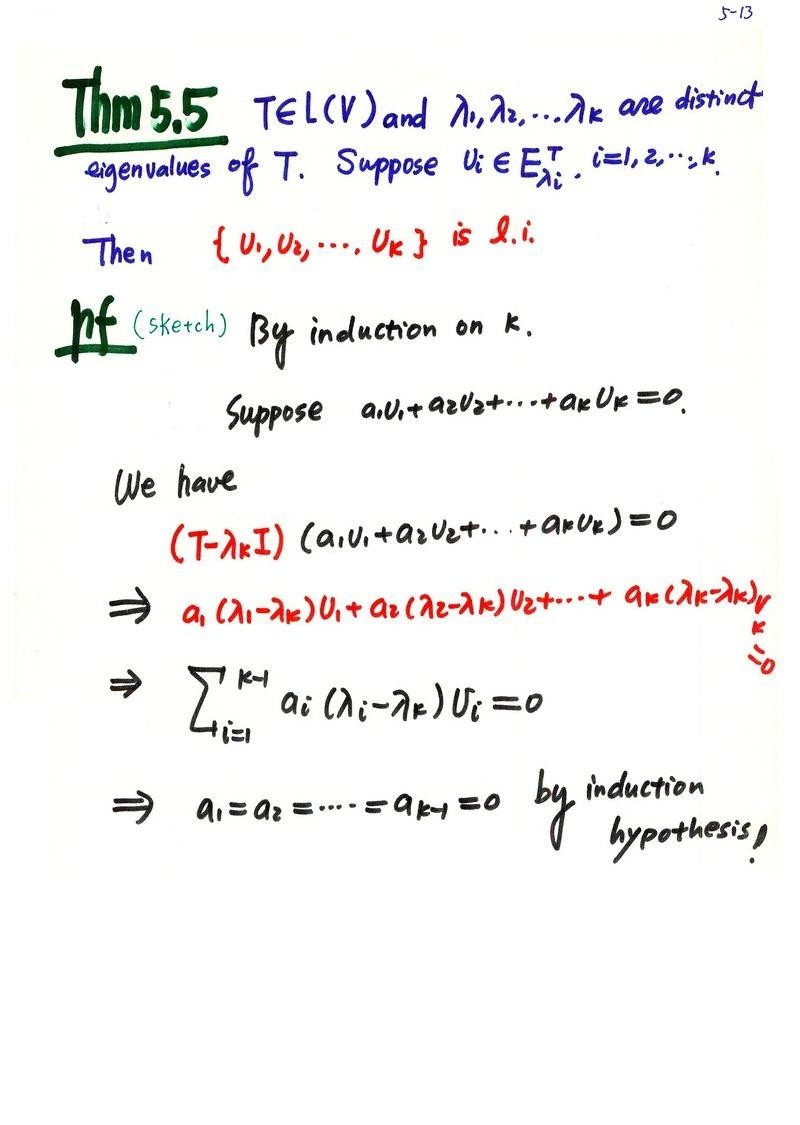 5-13
Thm 5.5 T∈L(V) and λ₁, λ₂, ... λₖ are distinct
eigenvalues of T. Suppose vᵢ ∈ E^T_λᵢ, i=1, 2, ..., k.
Then {v₁, v₂, ..., vₖ} is l.i.
pf (sketch) By induction on k.
Suppose a₁v₁+a₂v₂+...+aₖvₖ=0.
We have
(T-λₖI) (a₁v₁+a₂v₂+...+aₖvₖ)=0
⇒ a₁(λ₁-λₖ)v₁+a₂(λ₂-λₖ)v₂+...+aₖ(λₖ-λₖ)vₖ
=0
⇒ ∑_{i=1}^{k-1} aᵢ(λᵢ-λₖ)vᵢ=0
⇒ a₁=a₂=....=aₖ₋₁=0 by induction
hypothesis!